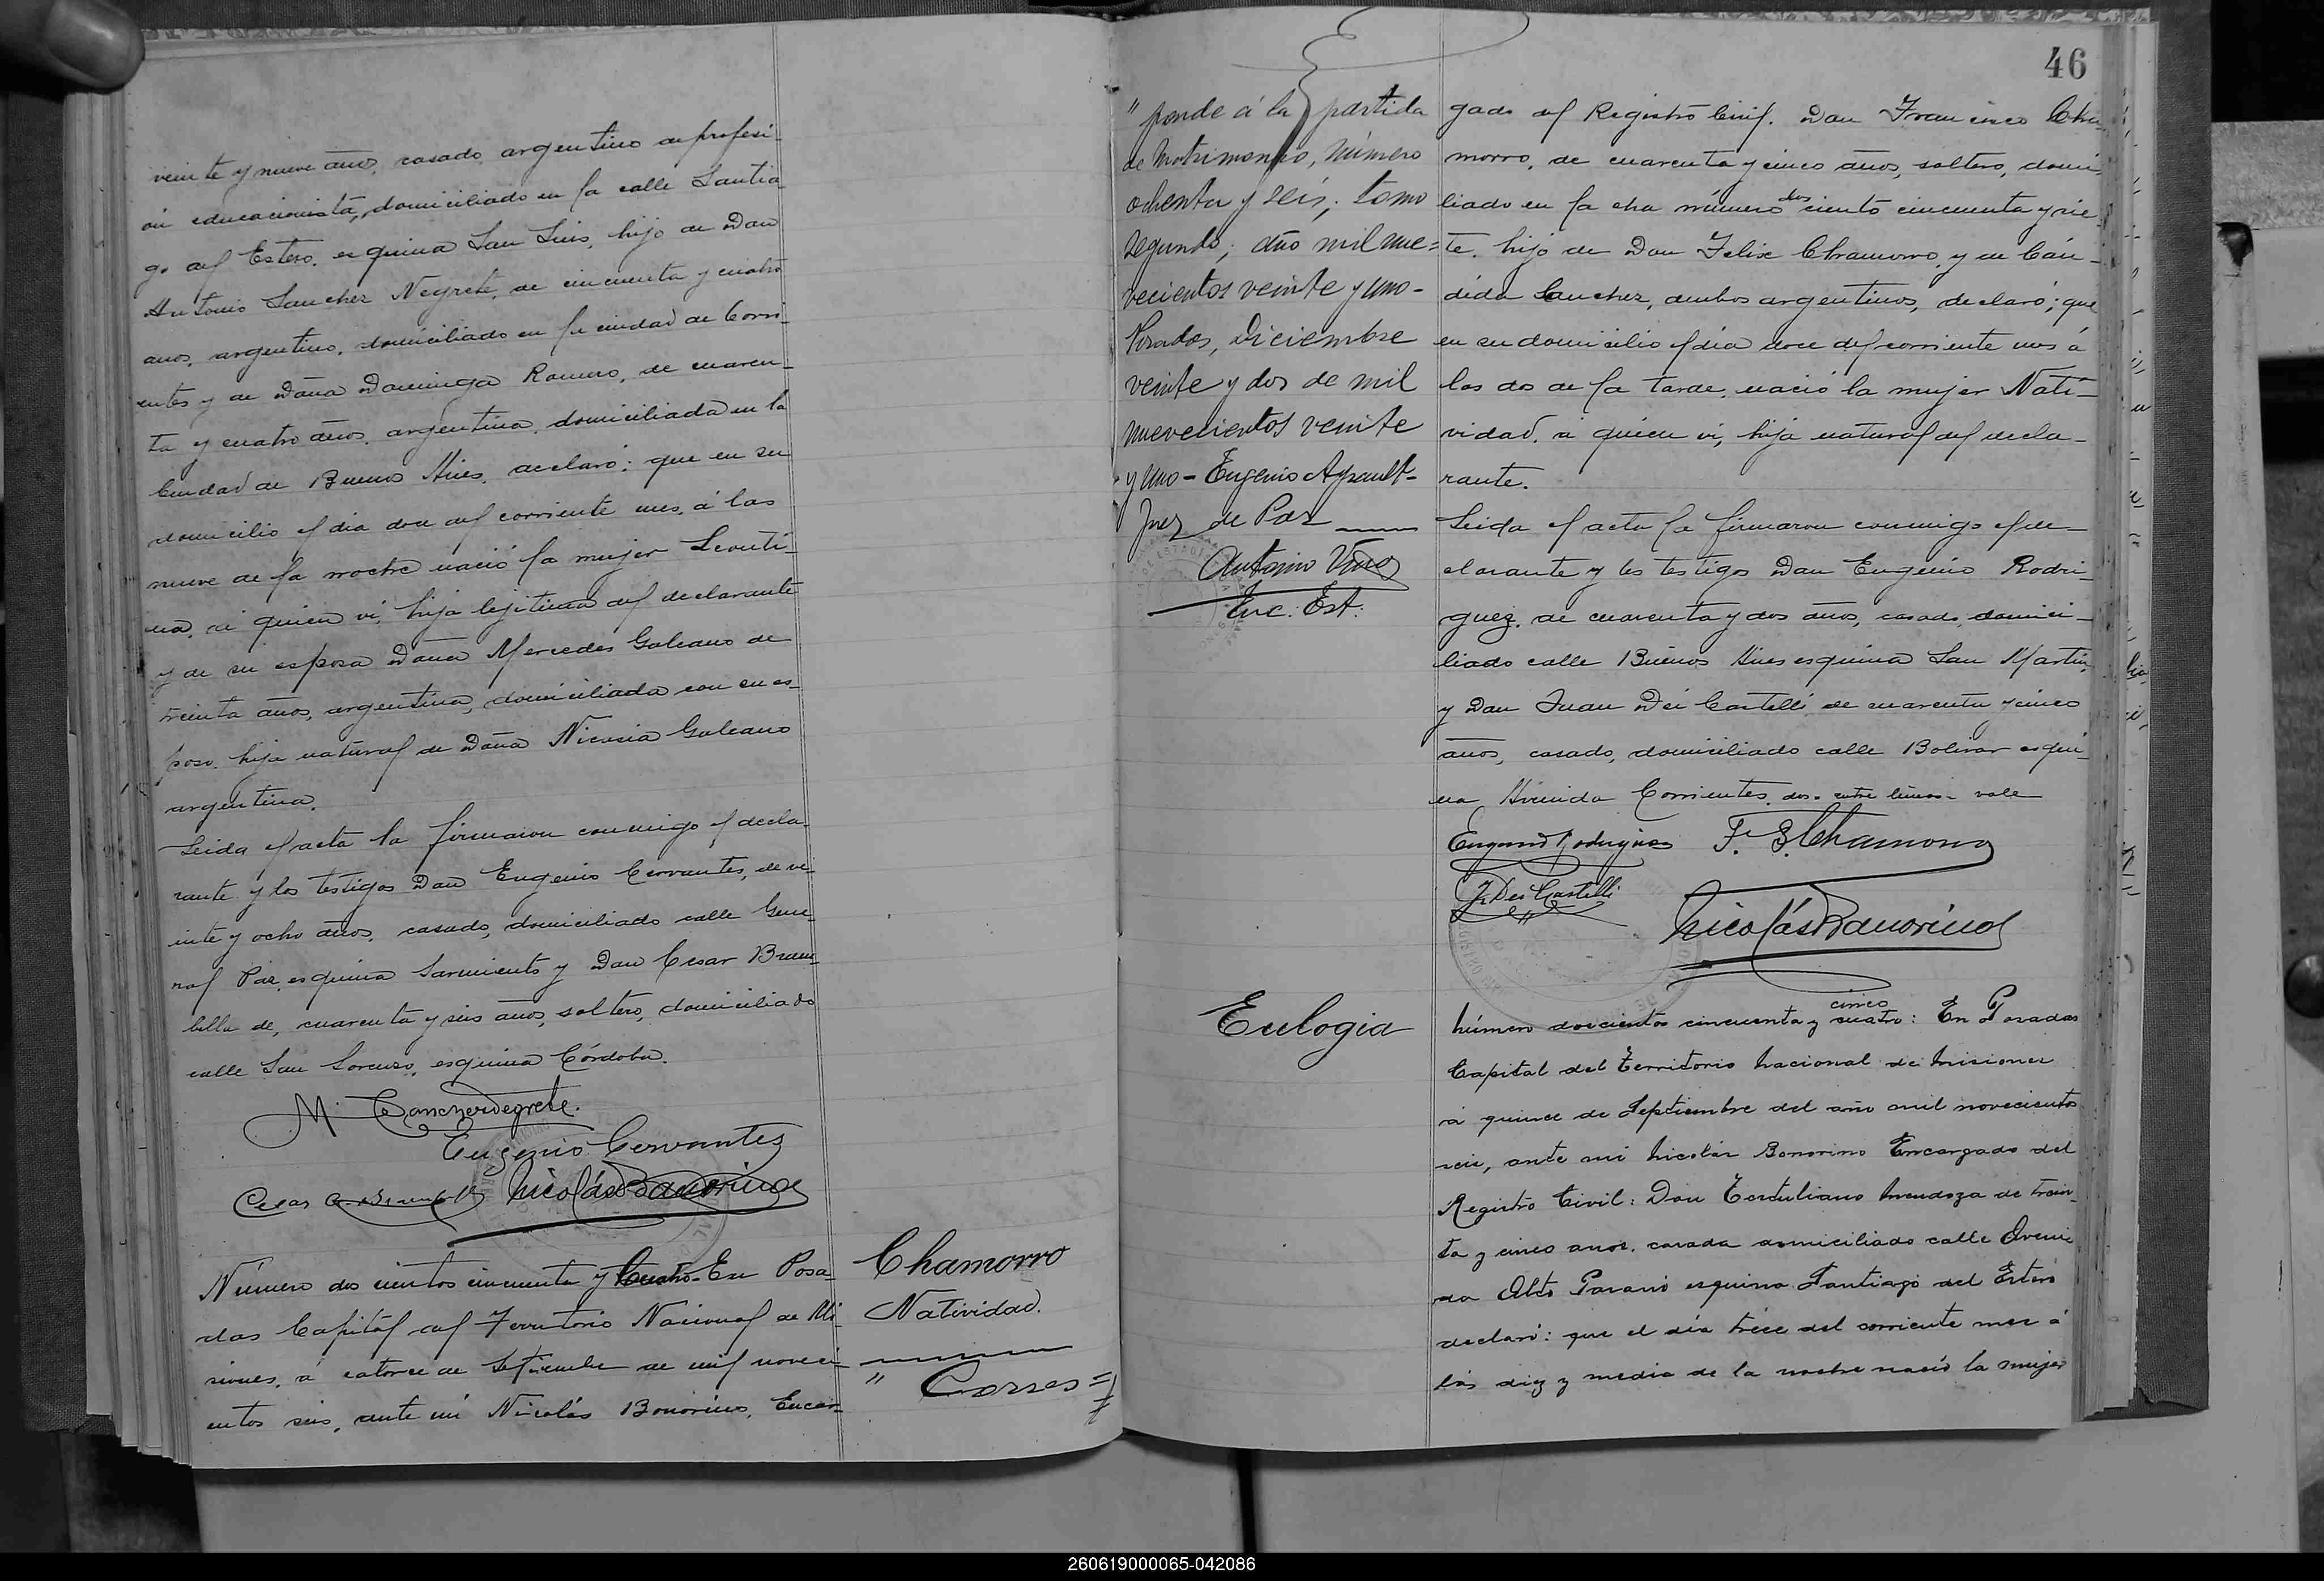 veinte y nueve años, casado, argentino de profesi-
ón educacionista, domiciliado en la calle Santia-
go del Estero esquina San Luis, hijo de Don
Antonio Sanchez Negrete, de cincuenta y cuatro
anos, argentino, domiciliado en la ciudad de Corri-
entes y de Doña Dominga Romero, de cuaren-
ta y cuatro años, argentina, domiciliada en la
Ciudad de Buenos Aires, declaró: que en su
domicilio el dia doce del corriente mes, á las
nueve de la noche nació la mujer Leonti-
na, á quien vi, hija lejitima del declarante
y de su esposa Doña Mercedes Galeano de
treinta años, argentina, domiciliada con su es-
poso, hija natural de Doña Nicasia Galeano
argentina.
Leida el acta la firmaron conmigo el decla-
rante y los testigos Don Eugenio Cervantes, de ve-
inte y ocho años, casado, domiciliado calle Gene-
ral Paz esquina Sarmiento y Don Cesar Bram-
billa de, cuarenta y seis años, soltero, domiciliado
calle San Lorenzo, esquina Córdoba.
M. Sancheznegrete.
Eugenio Cervantes
Cesar Nicolás Bonorino
Número dos cientos cincuenta y Cuatro-En Posa-
das Capital del Territorio Nacional de Mi-
siones, á catorce de Setiembre de mil noveci-
entos seis, ante mi Nicolás Bonorino, Encar-
Chamorro
Natividad.
" Corres=
46
" ponde á la partida
de Matrimonio, número
ochenta y seis; tomo
segundo; año mil nue=
vecientos veinte y uno-
Posadas, Diciembre
veinte y dos de mil
nuevecientos veinte
y uno- Eugenio
Juez de Paz
Antonio
Enc. Est.
gado del Registro Civil. Don Francisco Cha-
morro, de cuarenta y cinco años, soltero, domi-
liado en la cha número dos ciento cincuenta y sie-
te, hijo de Don Felix Chamorro y de Cán-
dida Sanchez, ambos argentinos, declaró; que
en su domicilio el dia doce del corriente mes á
las dos de la tarde, nació la mujer Nati-
vidad, á quien vi, hija natural del decla-
rante.
Leida el acta la firmaron conmigo el de-
clarante y los testigos Don Eugenio Rodri-
guez, de cuarenta y dos años, casado, domici-
liado calle Buenos Aires esquina San Martin,
y Don Juan Dei Castelli de cuarenta y cinco
años, casado, domiciliado calle Bolivar esqui-
na Avenida Corrientes. dos- entre lineas- vale
Eugenio Rodriguez F. S. Chamorro
J. Dei Castelli
Nicolás Bonorino
Eulogia
Número doscientos cincuenta y cinco cuatro: En Posadas
Capital del Territorio Nacional de Misiones
á quince de Septiembre del año mil novecientos
seis, ante mi Nicolás Bonorino Encargado del
Registro Civil: Don Tertuliano Mendoza de trein-
ta y cinco anos, casado domiciliado calle Aveni
da Alto Paraná esquina Santiago del Estero
declaró: que el día trece del corriente mes á
las diez y media de la noche nació la mujer
260619000065-042086